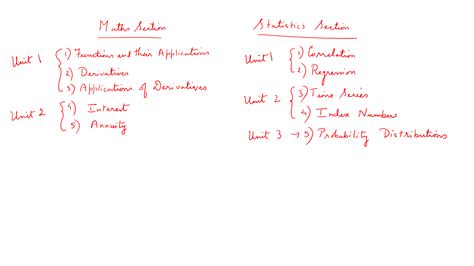 Maths Section
Unit 1
1) Functions and their Applications
2) Derivatives
3) Applications of Derivatives
Unit 2
4) Interest
5) Annuity
Statistics Section
Unit 1
1) Correlation
2) Regression
Unit 2
3) Time Series
4) Index Number
Unit 3 → 5) Probability Distributions